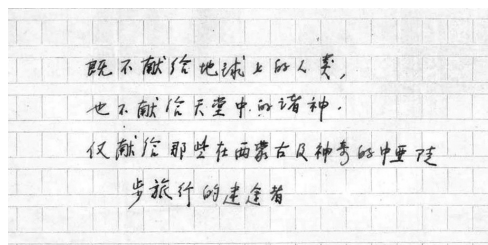 既不献给地球上的人类，
也不献给天堂中的诸神。
仅献给那些在西蒙古及神奇的中亚陡
步旅行的建途者